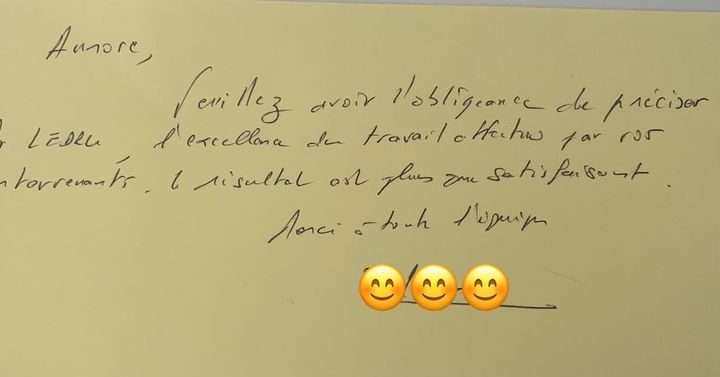 Aurore,
Veuillez avoir l'obligeance de préciser
LEDRU, l'excellence du travail effectué par vos
intervenants. Le résultat est plus que satisfaisant.
Merci à toute l'équipe